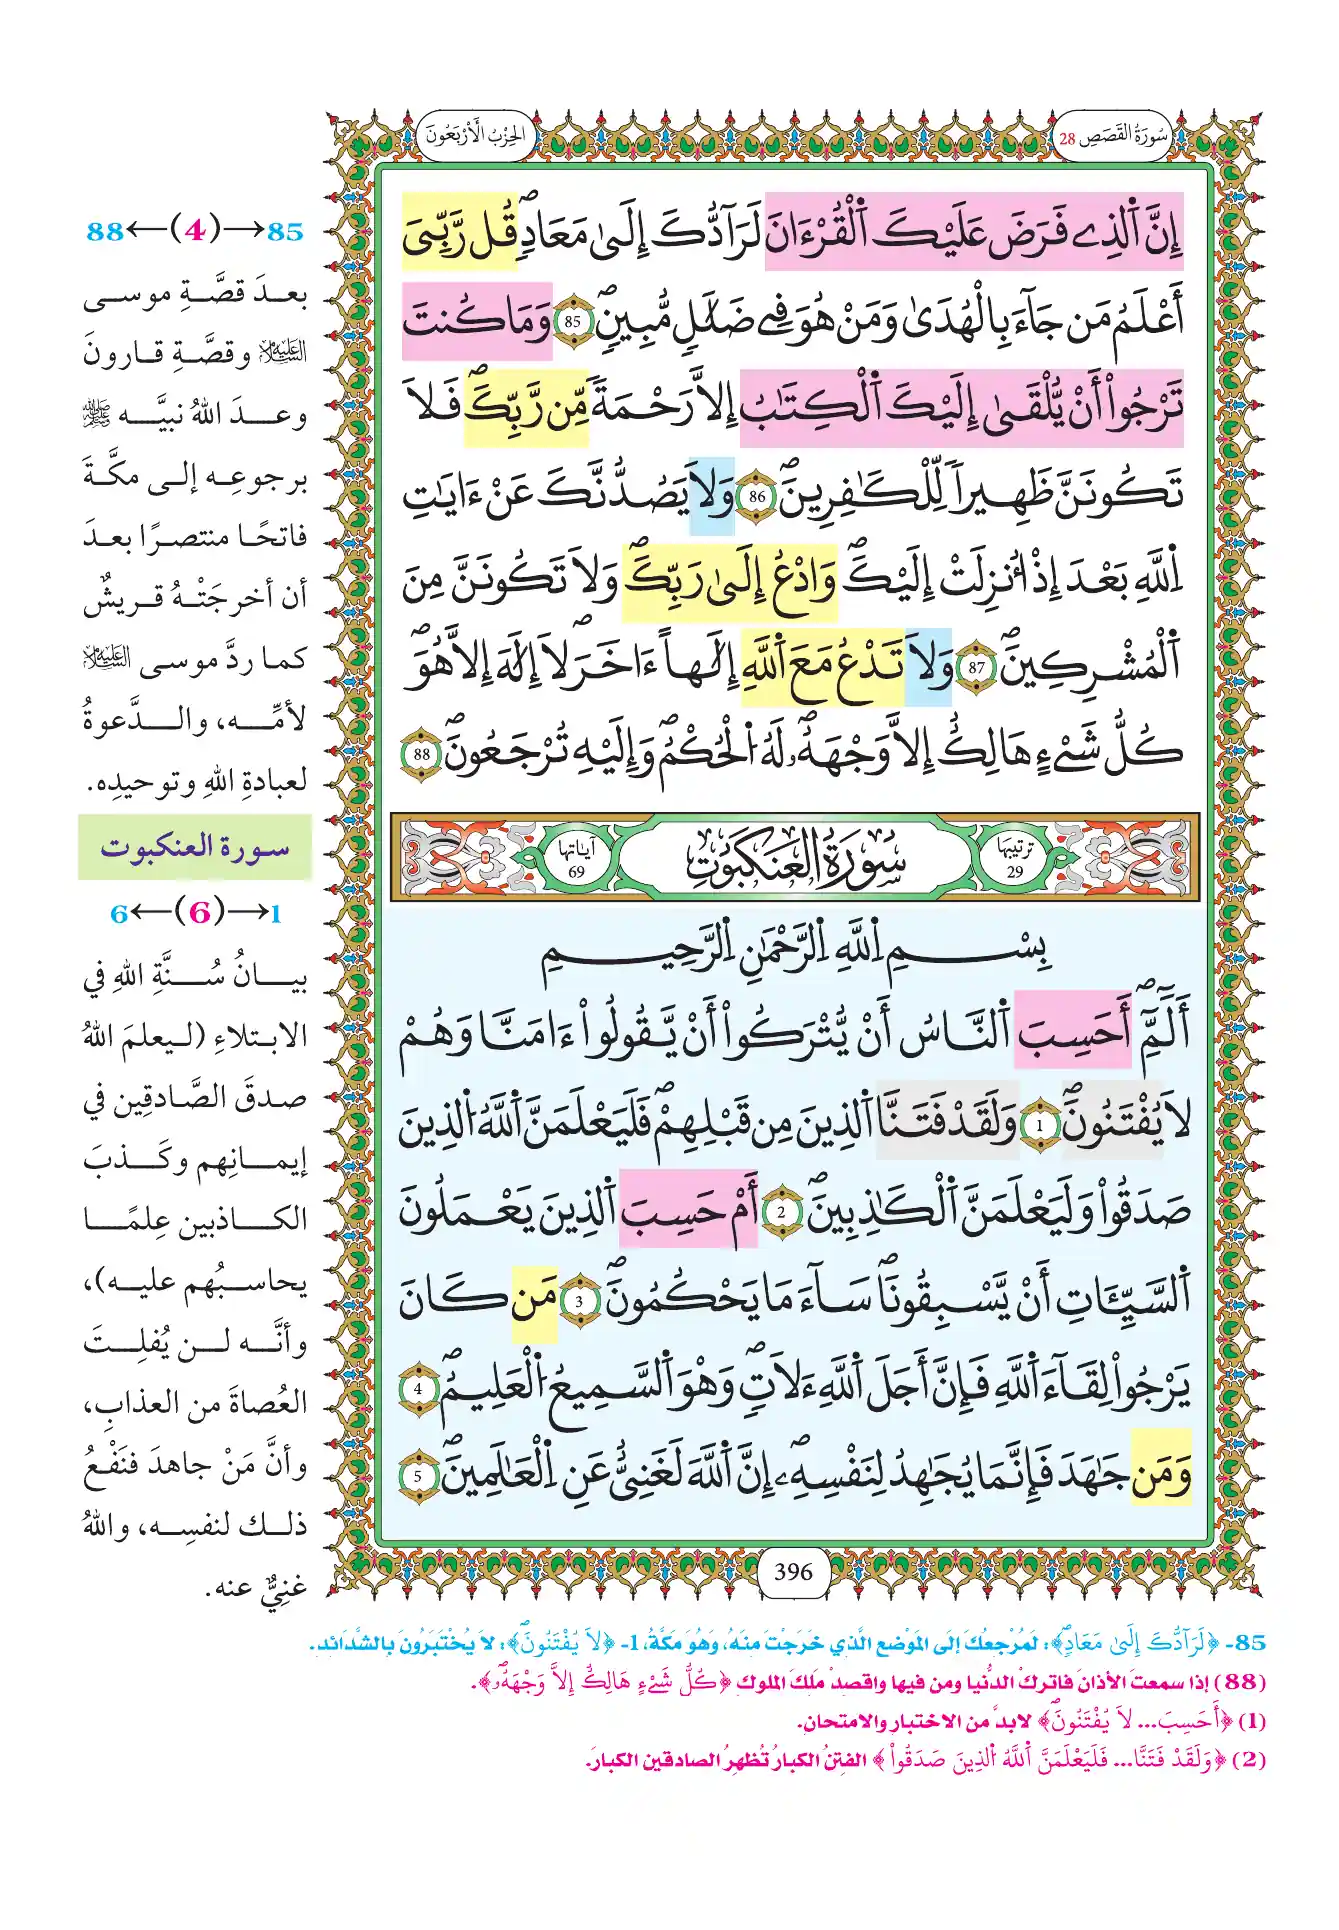 سُورَةُ القَصَصِ 28
الحِزْبُ الأَرْبَعُونَ
إِنَّ اَ۬لذِے فَرَضَ عَلَيْكَ اَ۬لْقُرْءَانَ لَرَآدُّكَ إِلَىٰ مَعَادٖۖ قُل رَّبِّىَ
أَعْلَمُ مَن جَآءَ بِالْهُدَىٰ وَمَنْ هُوَ فِے ضَلَٰلٖ مُّبِينٖۖ 85 وَمَا كُنتَ
تَرْجُوٓاْ أَنْ يُّلْقَىٰٓ إِلَيْكَ اَ۬لْكِتَٰبُ إِلَّا رَحْمَةٗ مِّن رَّبِّكَۖ فَلَا
تَكُونَنَّ ظَهِيراٗ لِّلْكَٰفِرِينَۖ 86 وَلَا يَصُدُّنَّكَ عَنْ ءَايَٰتِ
اِ۬للَّهِ بَعْدَ إِذُ ا۟نزِلَتْ إِلَيْكَۖ وَادْعُ إِلَىٰ رَبِّكَۖ وَلَا تَكُونَنَّ مِنَ
اَ۬لْمُشْرِكِينَۖ 87 وَلَا تَدْعُ مَعَ اَ۬للَّهِ إِلَٰهاً ءَاخَرَۖ لَا إِلَٰهَ إِلَّا هُوَۖ
كُلُّ شَےْءٍ هَالِكٌ إِلَّا وَجْهَهُۥۖ لَهُ اُ۬لْحُكْمُ وَإِلَيْهِ تُرْجَعُونَۖ 88
ترتيبها 29
سُورَةُ العَنكَبُوتِ
آياتها 69
بِسْمِ اِ۬للَّهِ اِ۬لرَّحْمَٰنِ اِ۬لرَّحِيمِ
أَلَٓمِّٓۖ أَحَسِبَ اَ۬لنَّاسُ أَنْ يُّتْرَكُوٓاْ أَنْ يَّقُولُوٓاْ ءَامَنَّا وَهُمْ
لَا يُفْتَنُونَۖ 1 وَلَقَدْ فَتَنَّا اَ۬لذِينَ مِن قَبْلِهِمْۖ فَلَيَعْلَمَنَّ اَ۬للَّهُ اُ۬لذِينَ
صَدَقُواْ وَلَيَعْلَمَنَّ اَ۬لْكَٰذِبِينَۖ 2 أَمْ حَسِبَ اَ۬لذِينَ يَعْمَلُونَ
اَ۬لسَّيِّـَٔاتِ أَنْ يَّسْبِقُونَاۖ سَآءَ مَا يَحْكُمُونَۖ 3 مَن كَانَ
يَرْجُواْ لِقَآءَ اَ۬للَّهِ فَإِنَّ أَجَلَ اَ۬للَّهِ ءَلَاتٖۖ وَهُوَ اَ۬لسَّمِيعُ اُ۬لْعَلِيمُۖ 4
وَمَن جَٰهَدَ فَإِنَّمَا يُجَٰهِدُ لِنَفْسِهِۦۖ إِنَّ اَ۬للَّهَ لَغَنِىٌّ عَنِ اِ۬لْعَٰلَمِينَۖ 5
396
85→(4)←88
بعدَ قصَّةِ موسى
عليه السلام وقصَّةِ قارونَ
وعدَ اللهُ نبيَّه ﷺ
برجوعِه إلى مكَّةَ
فاتحًا منتصرًا بعدَ
أن أخرجَتْهُ قريشٌ
كما ردَّ موسى عليه السلام
لأمِّه، والدَّعوةُ
لعبادةِ اللهِ وتوحيدِه.
سورة العنكبوت
1→(6)←6
بيانُ سُنَّةِ اللهِ في
الابتلاءِ (ليعلمَ اللهُ
صدقَ الصَّادقِين في
إيمانِهم وكَذبَ
الكاذبين عِلمًا
يحاسبُهم عليه)،
وأنَّه لن يُفلِتَ
العُصاةَ من العذابِ،
وأنَّ مَنْ جاهدَ فنَفْعُ
ذلك لنفسِه، واللهُ
غنِيٌّ عنه.
85- ﴿لَرَآدُّكَ إِلَىٰ مَعَادٖۖ﴾: لَمُرْجِعُكَ إِلَى المَوْضِعِ الَّذي خَرَجْتَ منهُ، وَهُوَ مَكَّةُ، 1- ﴿لَا يُفْتَنُونَۖ﴾: لاَ يُخْتَبَرُونَ بالشَّدَائدِ.
(88) إذا سمعتَ الأذانَ فاتركْ الدُّنيا ومن فيها واقصدْ مَلِكَ الملوكِ ﴿كُلُّ شَےْءٍ هَالِكٌ إِلَّا وَجْهَهُۥۖ﴾.
(1) ﴿أَحَسِبَ... لَا يُفْتَنُونَۖ﴾ لابدَّ من الاختبار والامتحان.
(2) ﴿وَلَقَدْ فَتَنَّا... فَلَيَعْلَمَنَّ اَ۬للَّهُ اُ۬لذِينَ صَدَقُواْ﴾ الفتنُ الكبارُ تُظهرُ الصادقين الكبارَ.